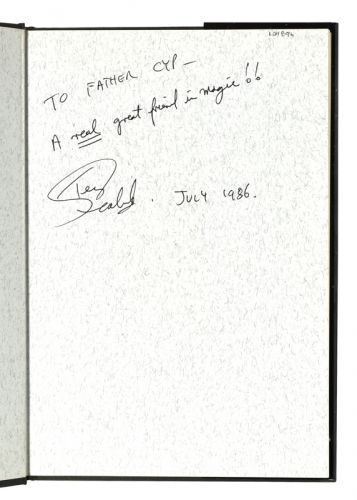 TO FATHER CYP –
A real great friend in magic !!
Terry Seabrooke . JULY 1986.